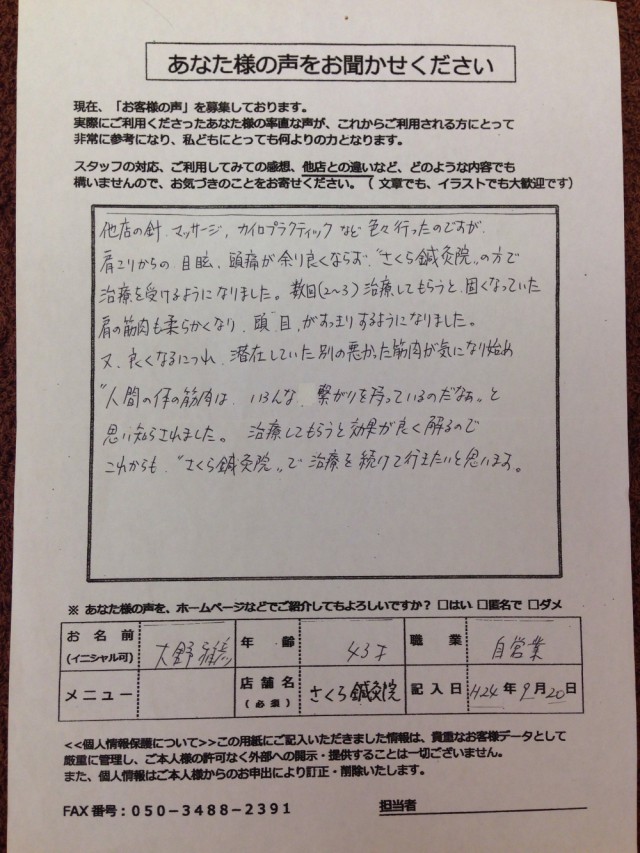 あなた様の声をお聞かせください
現在、「お客様の声」を募集しております。
実際にご利用くださったあなた様の率直な声が、これからご利用される方にとって
非常に参考になり、私どもにとっても何よりの力となります。
スタッフの対応、ご利用してみての感想、他店との違いなど、どのような内容でも
構いませんので、お気づきのことをお寄せください。（ 文章でも、イラストでも大歓迎です）
他店の針、マッサージ、カイロプラクティックなど色々行ったのですが、
肩こりからの、目眩、頭痛が余り良くならず、"さくら鍼灸院"の方で
治療を受けるようになりました。数回(2〜3)治療してもらうと、固くなっていた
肩の筋肉も柔らかくなり、頭、目、がすっきりするようになりました。
又、良くなるにつれ、潜在していた別の悪かった筋肉が気になり始め
"人間の体の筋肉は、いろんな、繋がりを持っているのだなぁ"と
思い知らされました。 治療してもらうと効果が良く解るので
これからも、"さくら鍼灸院"で治療を続けて行きたいと思います。
※ あなた様の声を、ホームページなどでご紹介してもよろしいですか？ □はい □匿名で □ダメ
お名前 (イニシャル可) 大野 年齢 43才 職業 自営業
メニュー 店舗名 (必須) さくら鍼灸院 記入日 H24年9月20日
<<個人情報保護について>>この用紙にご記入いただきました情報は、貴重なお客様データとして
厳重に管理し、ご本人様の許可なく外部への開示・提供することは一切ございません。
また、個人情報はご本人様からのお申出により訂正・削除いたします。
FAX番号：050－3488－2391 担当者